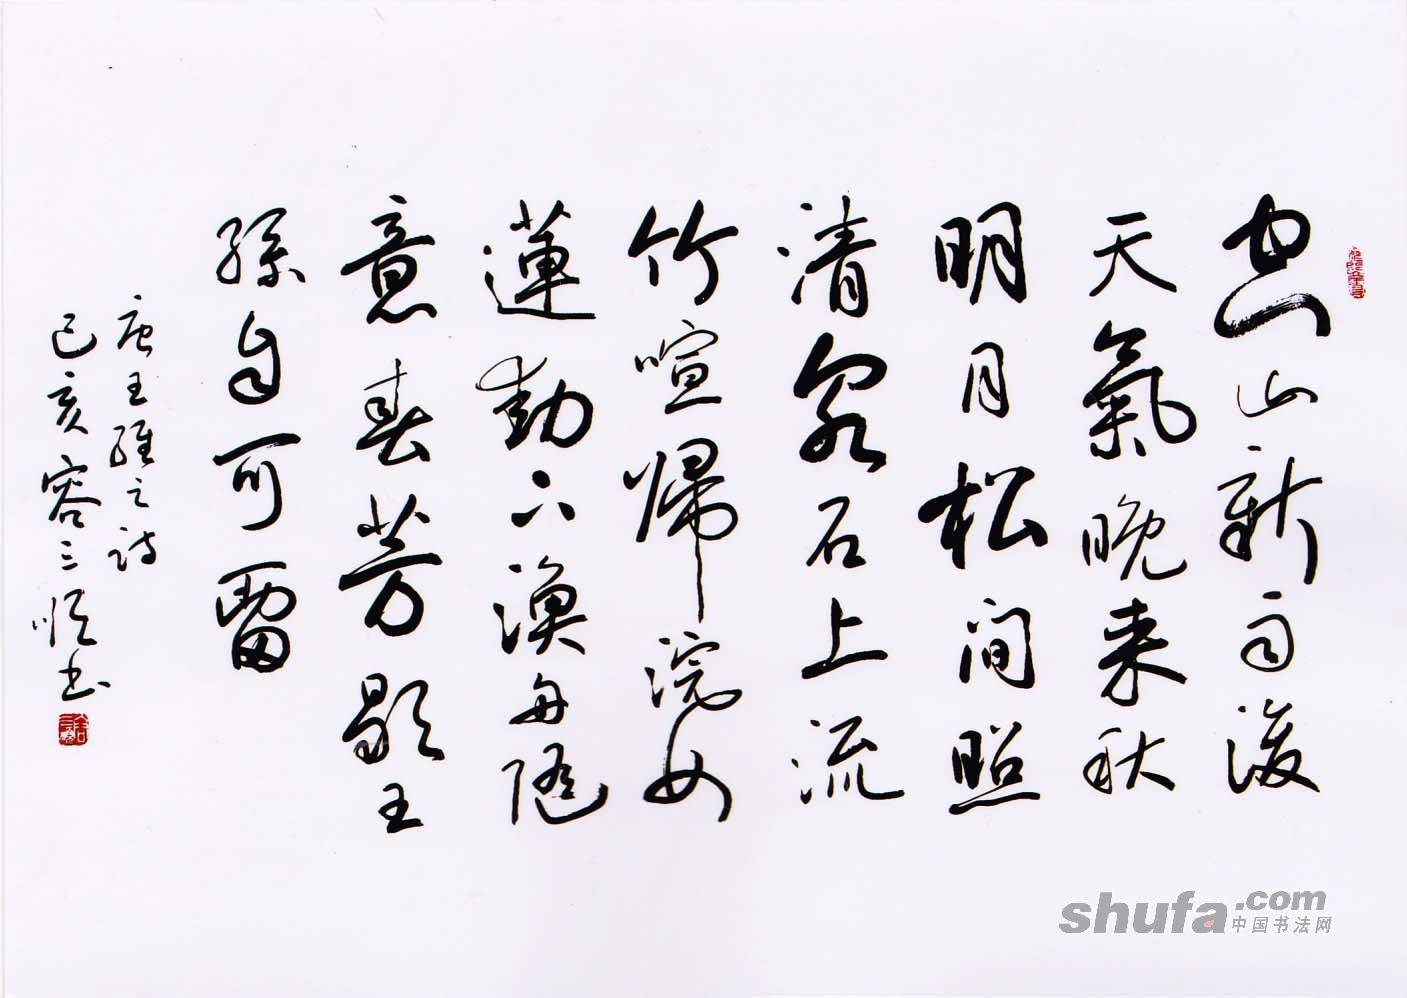 空山新雨後
天氣晚来秋
明月松间照
清泉石上流
竹喧帰浣女
蓮動下漁舟隨
意春芳歇王
孫自可留
唐王維之詩
己亥容三书
shufa.com
中国书法网